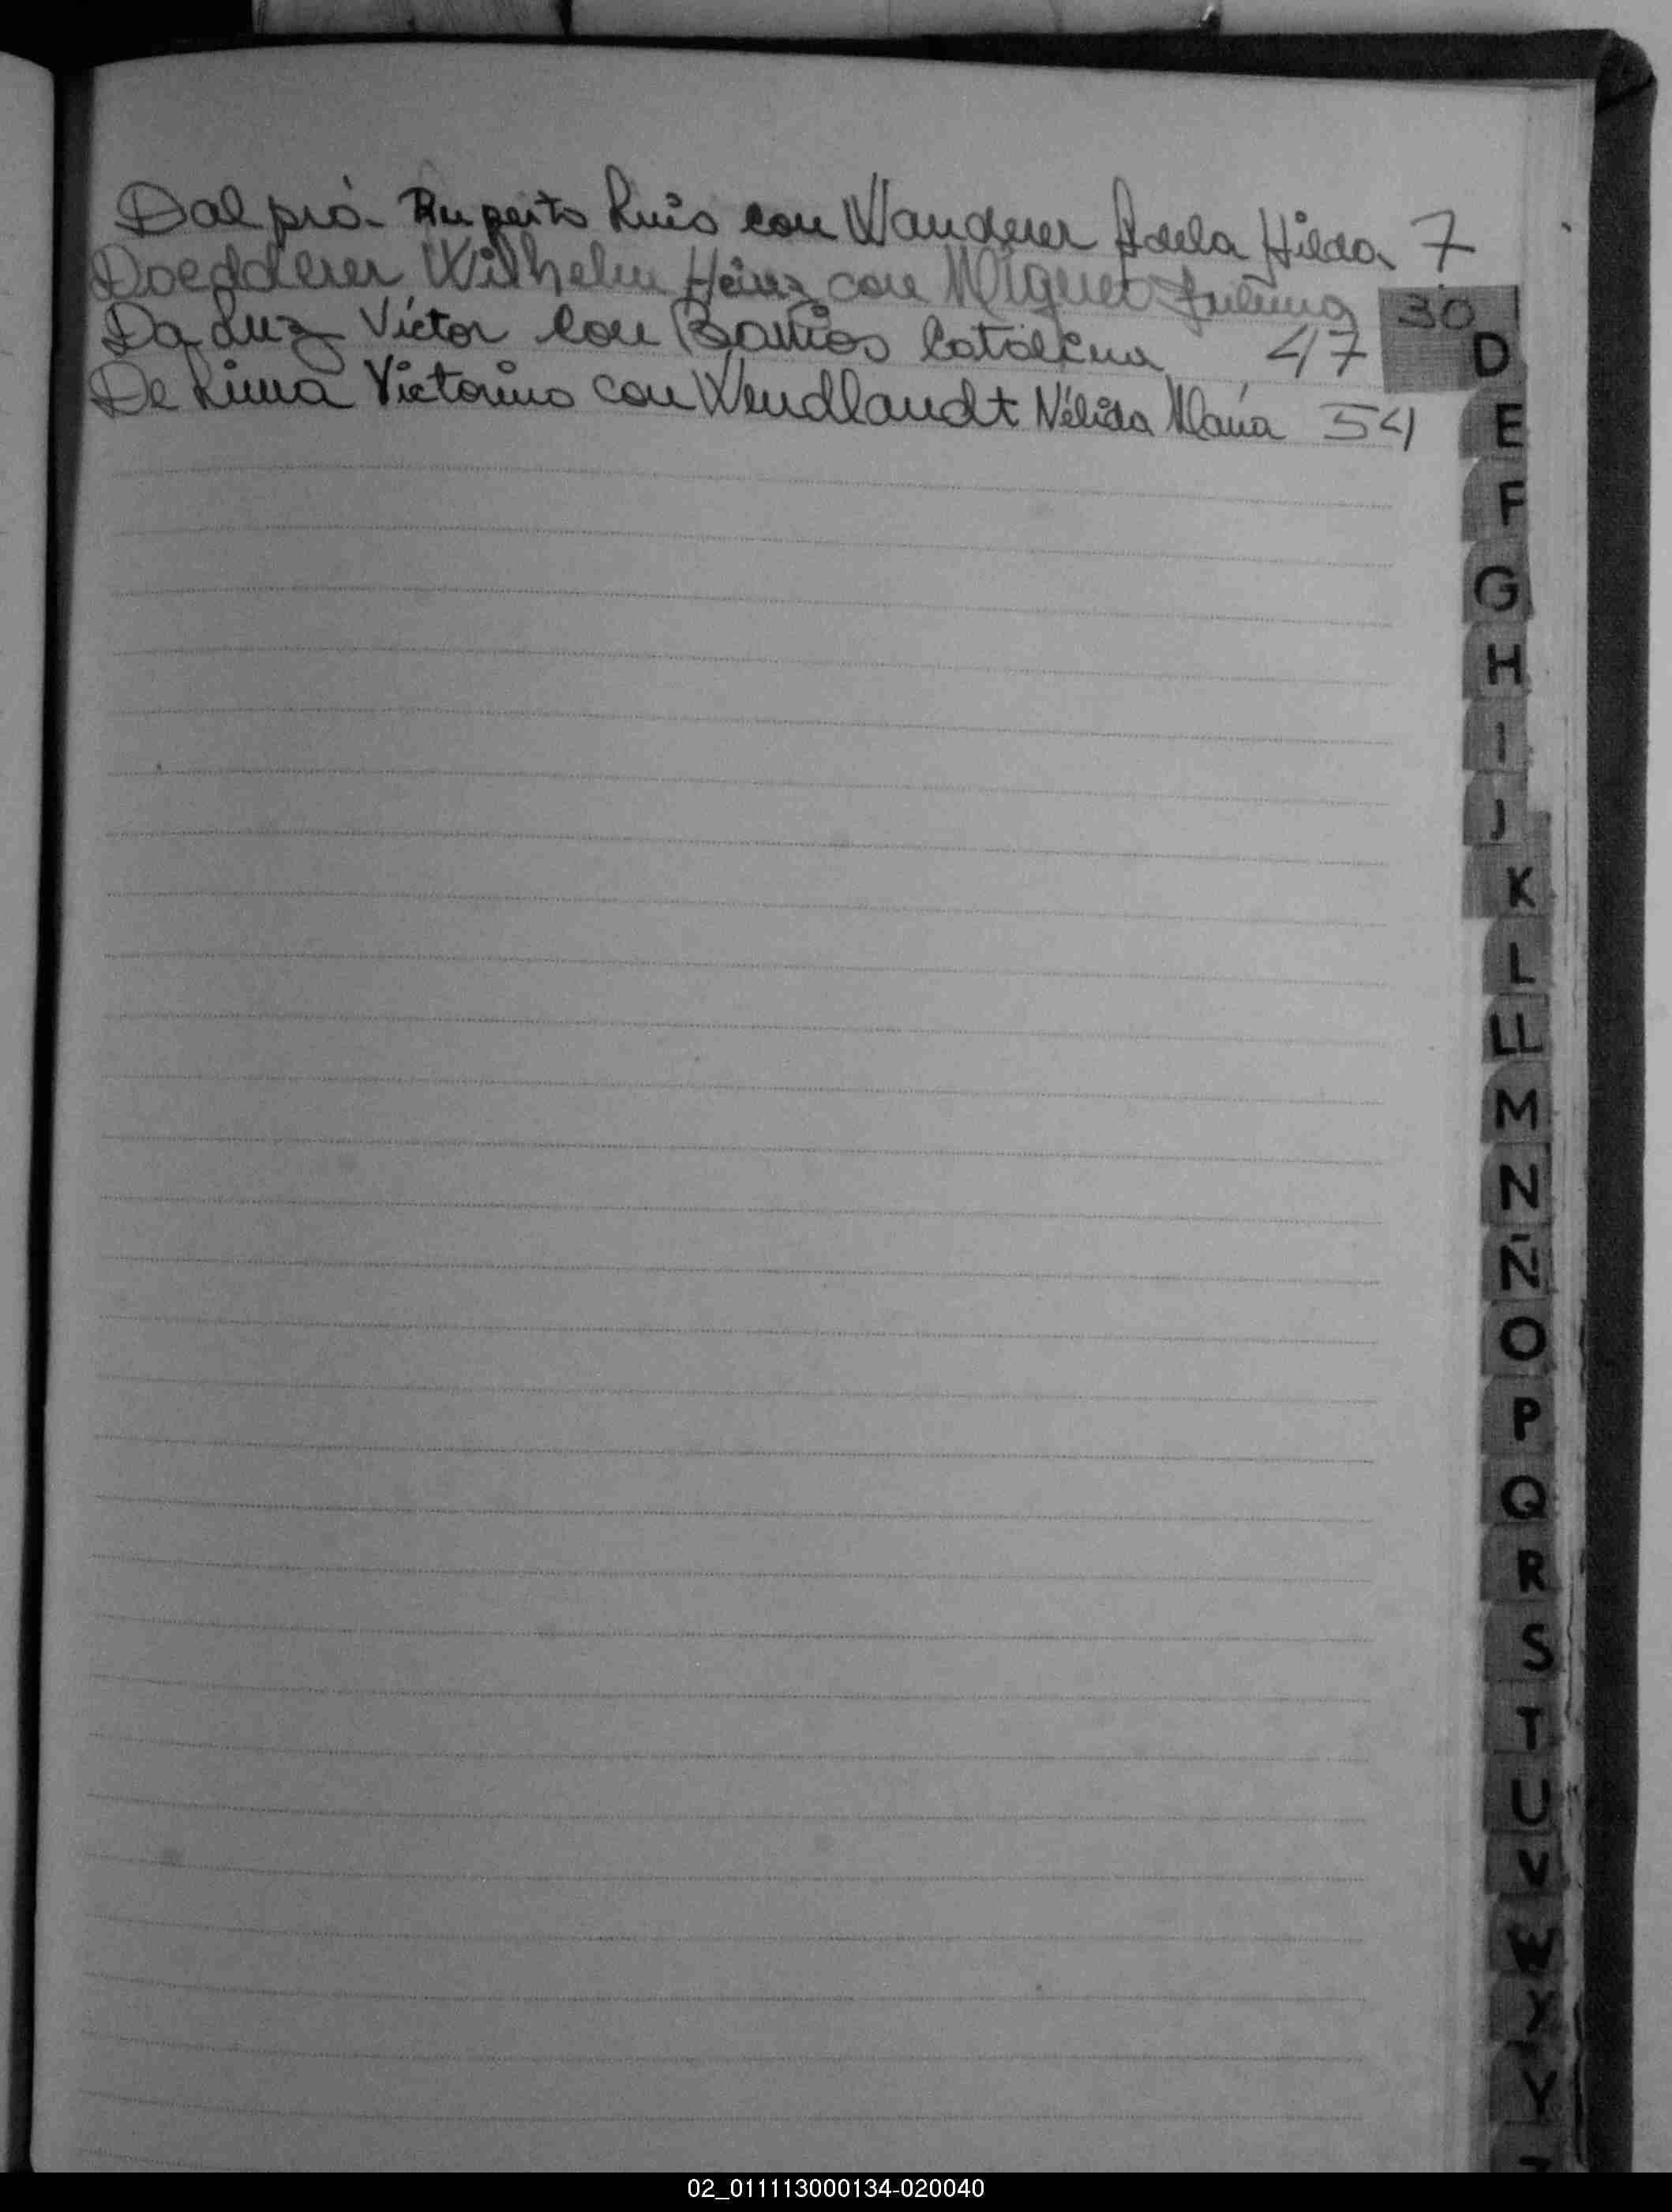 Dal pró- Ruperto Luis con Wanderer Adela Hilda 7
Doedderer Wilhelm Heinz con Miguel 30
Da Luz Víctor con Barrios Catalina 47
De Lima Victorino con Wendlandt Nélida María 54
D
E
F
G
H
I
J
K
L
LL
M
N
Ñ
O
P
Q
R
S
T
U
V
W
X
Y
02_011113000134-020040